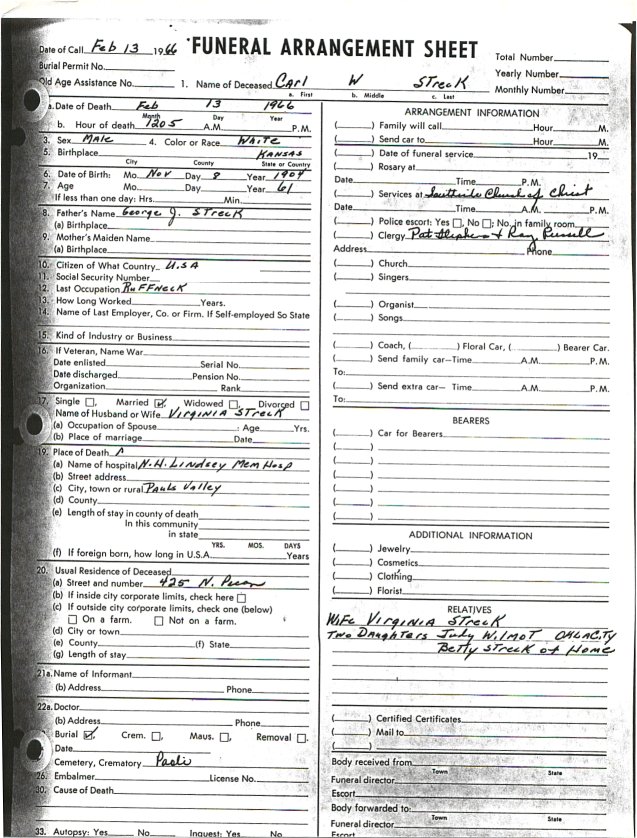 Date of Call Feb 13 1966 FUNERAL ARRANGEMENT SHEET
Burial Permit No.
Total Number
Yearly Number
Monthly Number
Old Age Assistance No. 1. Name of Deceased Carl W Streck
a. First b. Middle c. Last
a. Date of Death Feb 13 1966
Month Day Year
b. Hour of death 1205 A.M. P.M.
3. Sex Male 4. Color or Race White
5. Birthplace Kansas
City County State or Country
6. Date of Birth: Mo. Nov Day 8 Year 1904
7. Age Mo. Day Year 61
If less than one day: Hrs. Min.
8. Father's Name George J. Streck
(a) Birthplace
9. Mother's Maiden Name
(a) Birthplace
10. Citizen of What Country U.S.A
11. Social Security Number
12. Last Occupation Ruffneck
13. How Long Worked Years.
14. Name of Last Employer, Co. or Firm. If Self-employed So State
15. Kind of Industry or Business
16. If Veteran, Name War
Date enlisted Serial No.
Date discharged Pension No.
Organization Rank
17. Single Married Widowed Divorced
Name of Husband or Wife Virginia Streck
(a) Occupation of Spouse : Age Yrs.
(b) Place of marriage Date
19. Place of Death
(a) Name of hospital N.H. Lindsey Mem Hosp
(b) Street address
(c) City, town or rural Pauls Valley
(d) County
(e) Length of stay in county of death
In this community
in state
YRS. MOS. DAYS
(f) If foreign born, how long in U.S.A. Years
20. Usual Residence of Deceased
(a) Street and number 425 N. Pecan
(b) If inside city corporate limits, check here
(c) If outside city corporate limits, check one (below)
On a farm. Not on farm.
(d) City or town
(e) County (f) State
(g) Length of stay
21a. Name of Informant
(b) Address Phone
22a. Doctor
(b) Address Phone
Burial Crem. Maus. Removal
Date
Cemetery, Crematory Paoli
26. Embalmer License No.
30. Cause of Death
33. Autopsy: Yes No Inquest: Yes No
ARRANGEMENT INFORMATION
( ) Family will call Hour M.
( ) Send car to Hour M.
( ) Date of funeral service 19
( ) Rosary at
Date Time P.M.
( ) Services at Southside Church of Christ
Date Time A.M. P.M.
( ) Police escort: Yes , No ; No. in family room
( ) Clergy Pat Stephens & Ray Russell
Address Phone
( ) Church
( ) Singers
( ) Organist
( ) Songs
( ) Coach, ( ) Floral Car, ( ) Bearer Car.
( ) Send family car—Time A.M. P.M.
To:
( ) Send extra car— Time A.M. P.M.
To:
BEARERS
( ) Car for Bearers
( )
( )
( )
( )
( )
( )
ADDITIONAL INFORMATION
( ) Jewelry
( ) Cosmetics
( ) Clothing
( ) Florist
RELATIVES
Wife Virginia Streck
Two Daughters Judy Wilmot Okla City
Betty Streck of Home
( ) Certified Certificates
( ) Mail to
( )
Body received from
Town State
Funeral director
Escort
Body forwarded to:
Town State
Funeral director
Escort